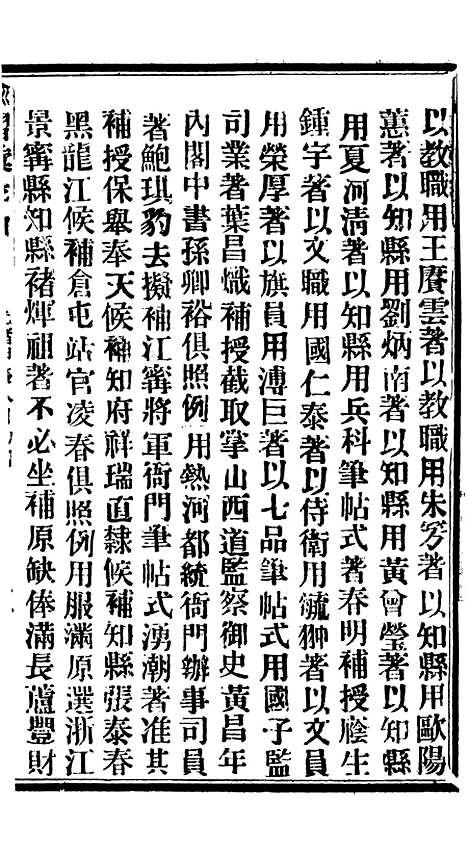 以教職用王賡雲著以教職用朱芳著以知縣用歐陽
蕙著以知縣用劉炳南著以知縣用黃曾瑩著以知縣
用夏河清著以知縣用兵科筆帖式著春明補授廕生
鍾宇著以文職用國仁泰著以侍衛用毓翀著以文員
用榮厚著以旗員用溥巨著以七品筆帖式用國子監
司業著葉昌熾補授截取掌山西道監察御史黃昌年
內閣中書孫卿裕俱照例用熱河都統衙門辦事司員
著鮑琪豹去擬補江甯將軍衙門筆帖式湧潮著准其
補授保舉奉天候補知府祥瑞直隸候補知縣張泰春
黑龍江候補倉屯站官凌春俱照例用服滿原選浙江
景甯縣知縣褚煇祖著不必坐補原缺俸滿長蘆豐財